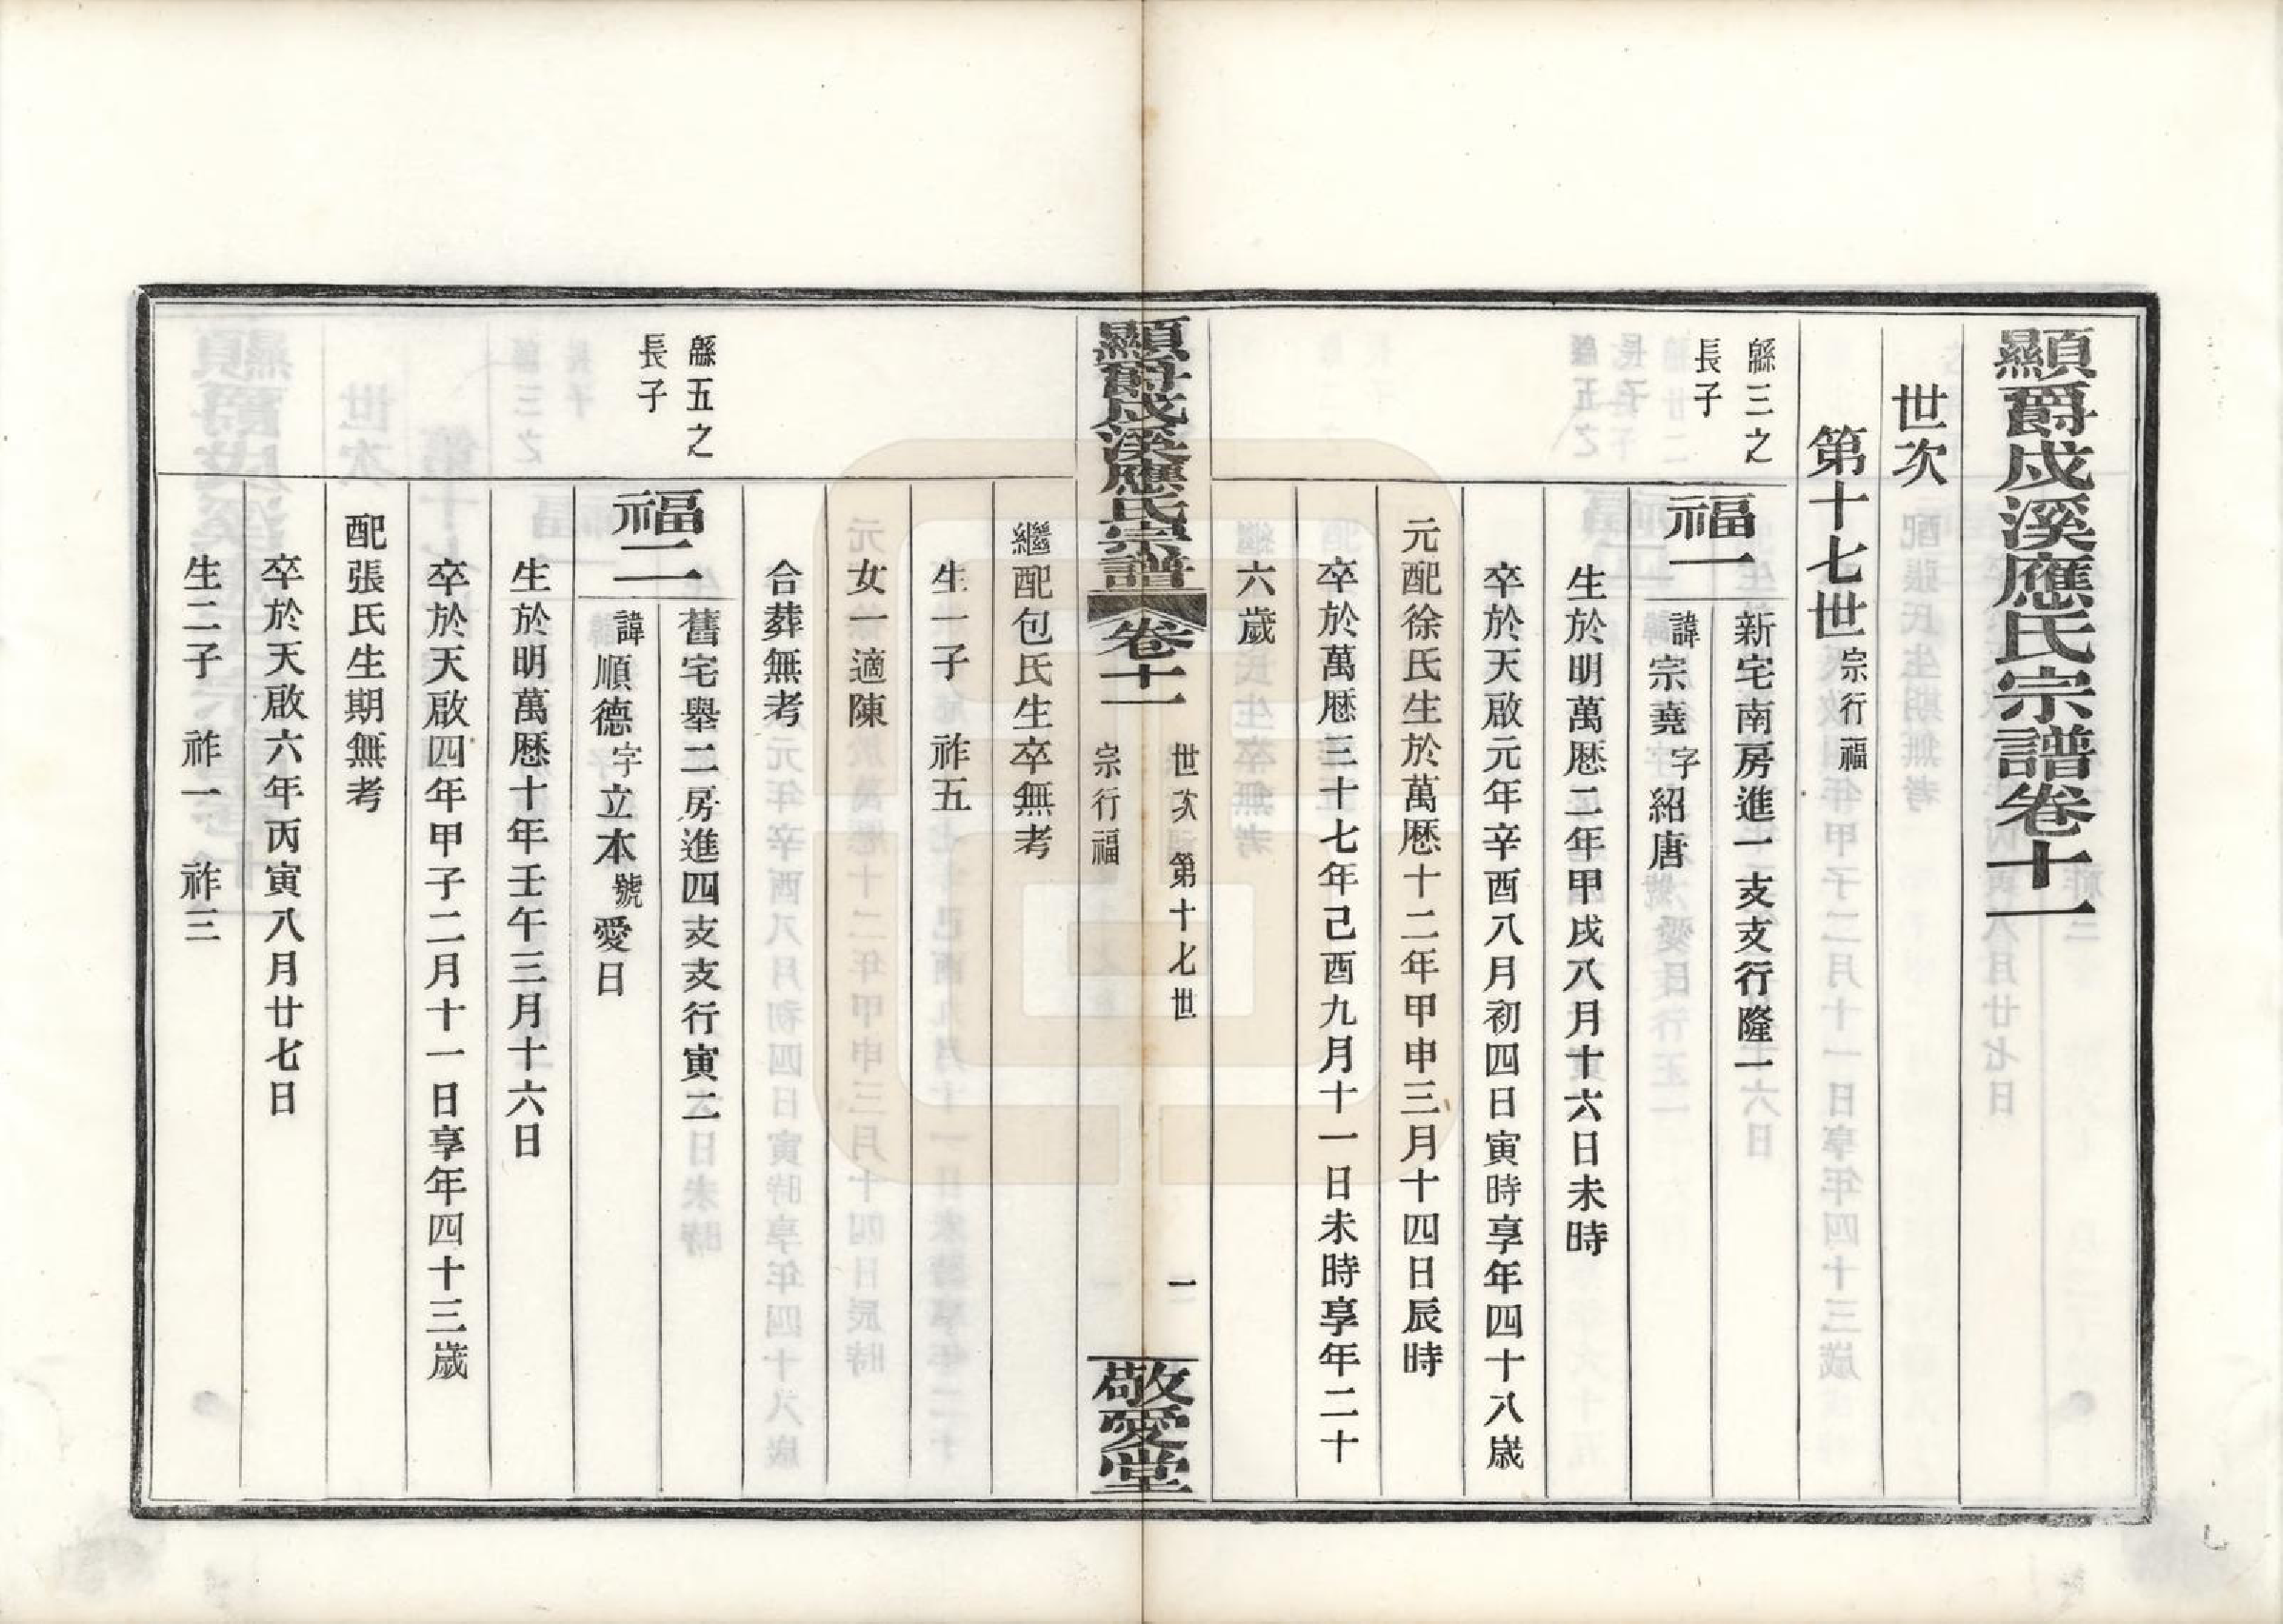 顯爵戍溪應氏宗譜卷十一
世次
第十七世宗行福
緜三之
長子
福一
新宅南房進一支支行隆一
諱宗堯字紹唐
生於明萬歷二年甲戌八月十六日未時
卒於天啟元年辛酉八月初四日寅時享年四十八歲
元配徐氏生於萬歷十二年甲申三月十四日辰時
卒於萬歷三十七年己酉九月十一日未時享年二十
六歲
顯爵戍溪應氏宗譜
卷十一
世次 第十七世
宗行福
一
敬愛堂
繼配包氏生卒無考
生一子 祚五
女一適陳
合葬無考
緜五之
長子
福二
舊宅舉二房進四支支行寅二
諱順德字立本號愛日
生於明萬歷十年壬午三月十六日
卒於天啟四年甲子二月十一日享年四十三歲
配張氏生期無考
卒於天啟六年丙寅八月廿七日
生二子 祚一 祚三